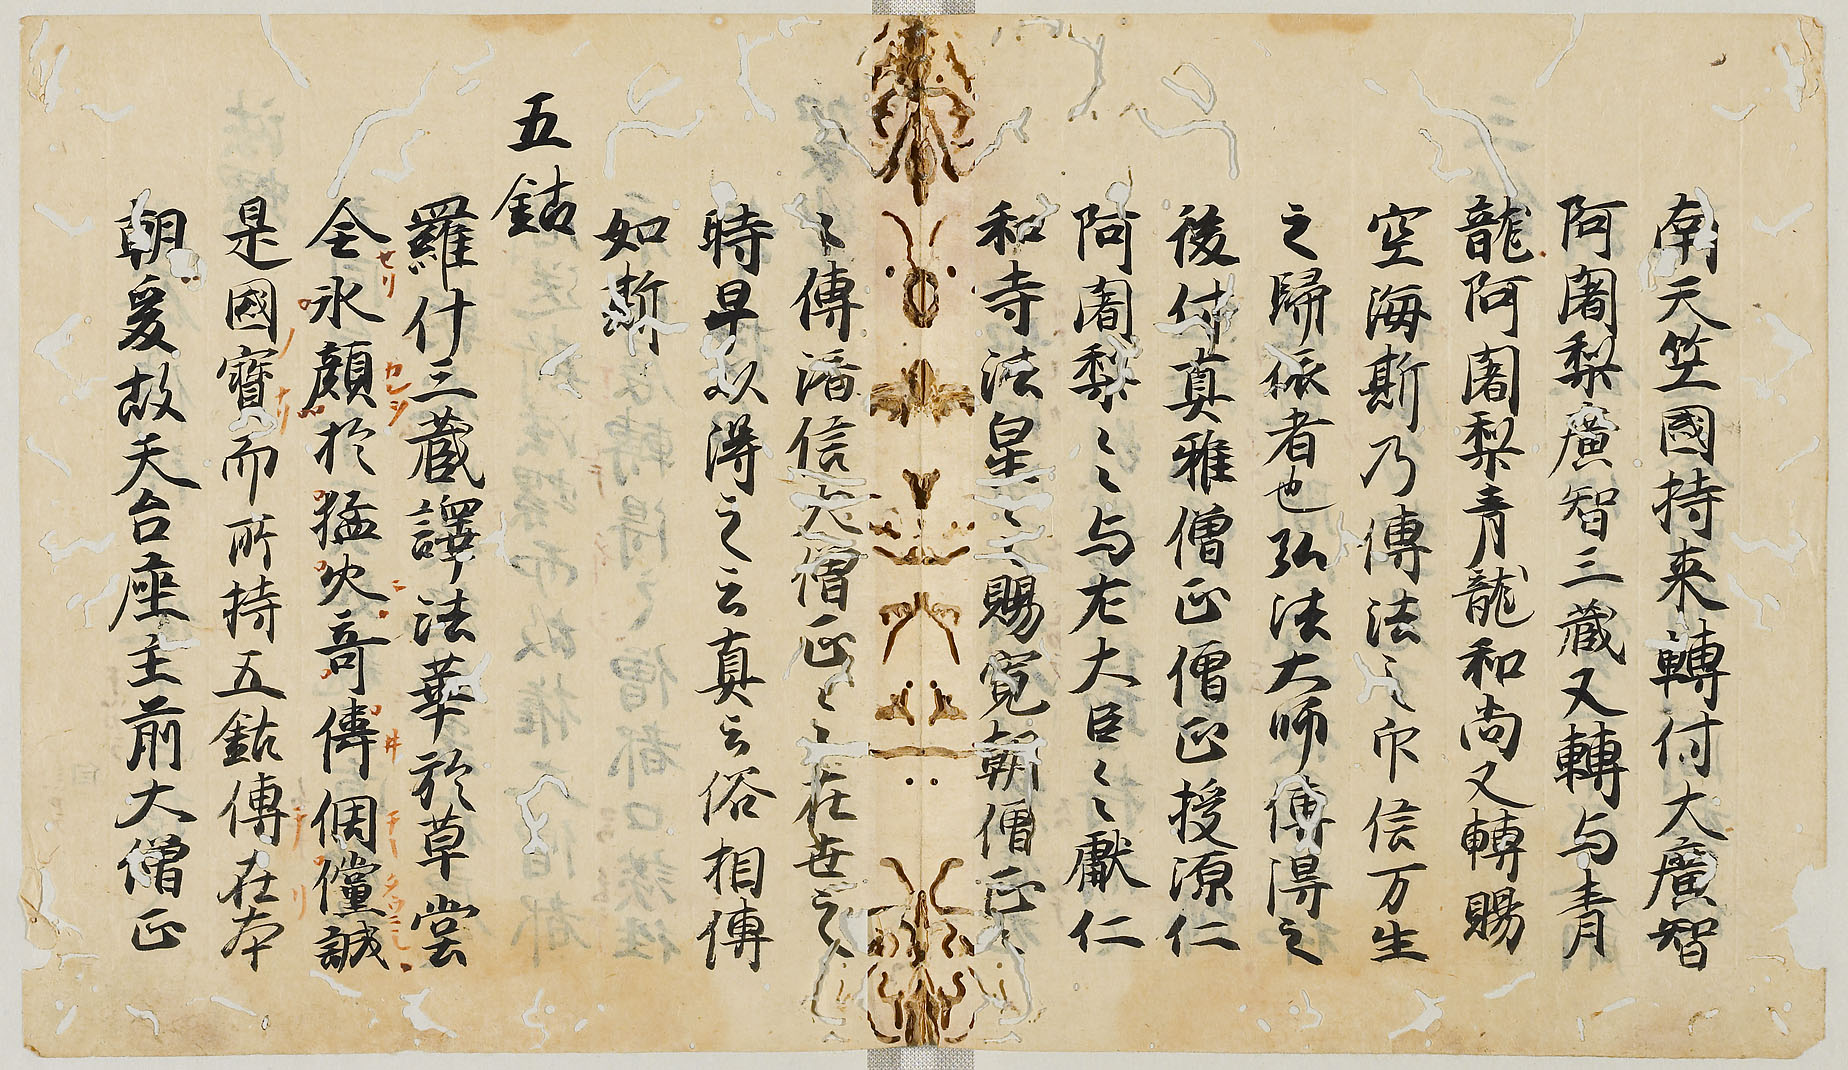 南天竺國持来轉付大廣智
阿闍梨廣智三蔵又轉与青
龍阿闍梨青龍和尚又轉賜
空海斯乃傳法之印信万生
之歸依者也弘法大師傳得之
後付真雅僧正僧正授源仁
阿闍梨々々与左大臣々々獻仁
和寺法皇々々賜寛朝僧正
々傳濟信大僧正々々在世之
時早以得之云真云俗相傳
如斯
五鈷
羅什三蔵譯法華於草堂
全氷顔於猛火奇傳倜儻誠
セリ カンシ ニ 井 テータウニシ
是國寳而所持五鈷傳在本
ノ ナリ テ リ
朝爰故天台座主前大僧正